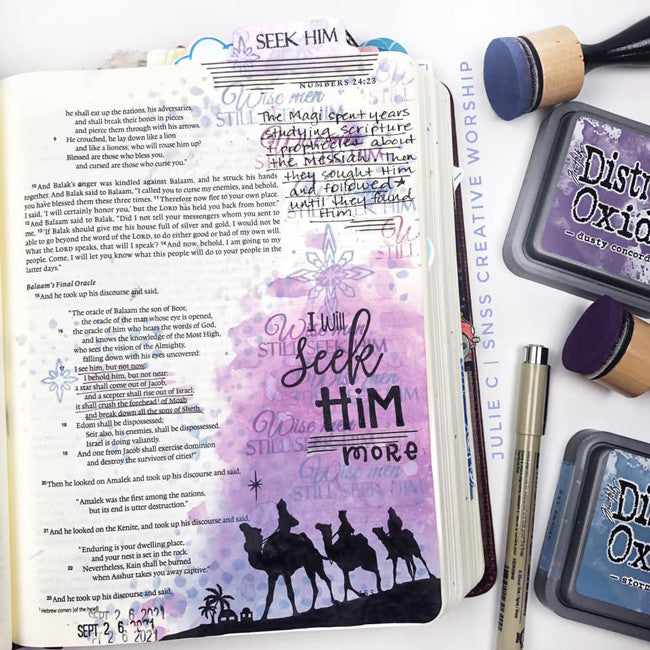 SEEK HIM
NUMBERS 24:23
he shall eat up the nations, his adversaries,
and shall break their bones in pieces
and pierce them through with his arrows.
9 He crouched, he lay down like a lion
and like a lioness; who will rouse him up?
Blessed are those who bless you,
and cursed are those who curse you."
10 And Balak's anger was kindled against Balaam, and he struck his hands
together. And Balak said to Balaam, "I called you to curse my enemies, and behold,
you have blessed them these three times. 11 Therefore now flee to your own place.
I said, 'I will certainly honor you,' but the LORD has held you back from honor."
12 And Balaam said to Balak, "Did I not tell your messengers whom you sent to
me, 13 'If Balak should give me his house full of silver and gold, I would not be
able to go beyond the word of the LORD, to do either good or bad of my own will.
What the LORD speaks, that will I speak'? 14 And now, behold, I am going to my
people. Come, I will let you know what this people will do to your people in the
latter days."
Balaam's Final Oracle
15 And he took up his discourse and said,
"The oracle of Balaam the son of Beor,
the oracle of the man whose eye is opened,
16 the oracle of him who hears the words of God,
and knows the knowledge of the Most High,
who sees the vision of the Almighty,
falling down with his eyes uncovered:
17 I see him, but not now;
I behold him, but not near:
a star shall come out of Jacob,
and a scepter shall rise out of Israel;
it shall crush the forehead1 of Moab
and break down all the sons of Sheth.
18 Edom shall be dispossessed;
Seir also, his enemies, shall be dispossessed.
Israel is doing valiantly.
19 And one from Jacob shall exercise dominion
and destroy the survivors of cities!"
20 Then he looked on Amalek and took up his discourse and said,
"Amalek was the first among the nations,
but its end is utter destruction."
21 And he looked on the Kenite, and took up his discourse and said,
"Enduring is your dwelling place,
and your nest is set in the rock.
22 Nevertheless, Kain shall be burned
when Asshur takes you away captive."
23 And he took up his discourse and said,
1 Hebrew corners [of the head]
SEPT 2 6, 2021
SEPT 2 6, 2021
Wise men
The Magi spent years
studying scripture
prophecies about
the Messiah. Then
they sought Him
and followed
until they found
Him.
STILL SEEK HIM
Wise men
STILL SEEK HIM
I will
seek
HIM
more
STILL SEEK HIM
Wise men
STILL SEEK HIM
Wise men
STILL SEEK HIM
JULIE C | SNSS CREATIVE WORSHIP
Distr
Oxid
dusty concord
Dis
Oxid
storm